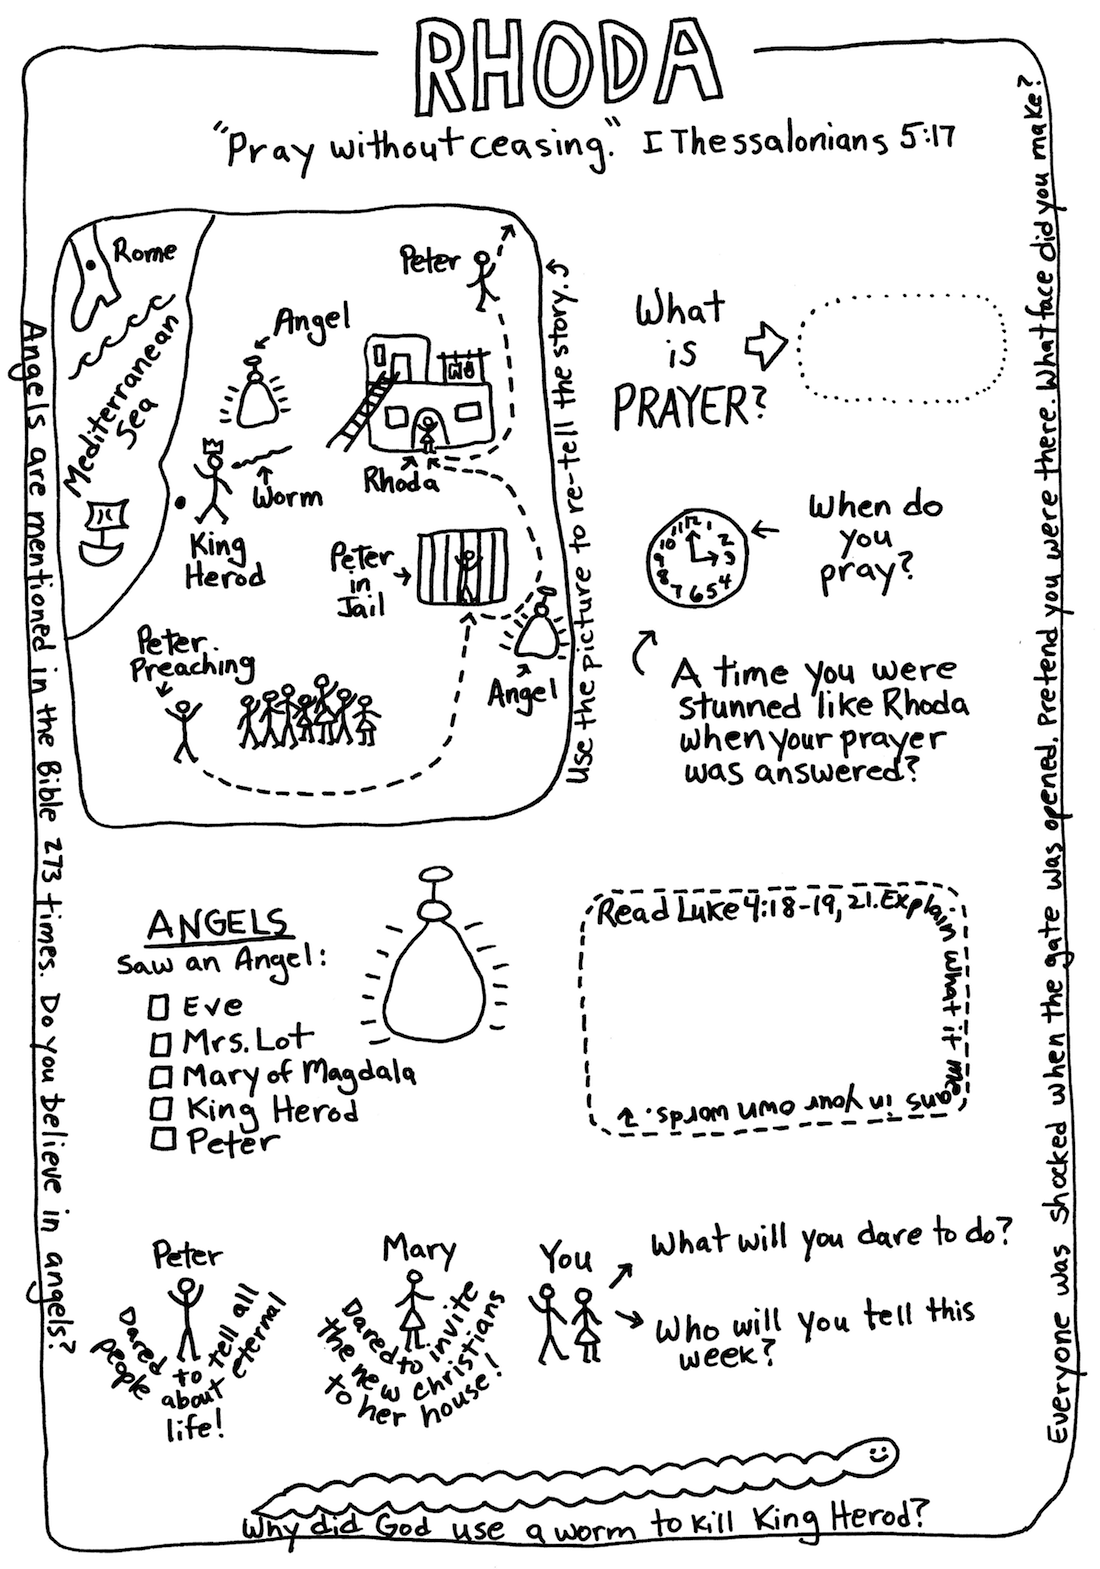 RHODA
"Pray without ceasing." I Thessalonians 5:17
Rome
Mediterranean
Sea
Angel
Peter
Worm
King
Herod
Rhoda
Peter
in
Jail
Angel
Peter
Preaching
Use the picture to re-tell the story.
What
is
PRAYER?
12 1 2 3 4 5 6 7 8 9 10 11
When do
you
pray?
A time you were
stunned like Rhoda
when your prayer
was answered?
ANGELS
Saw an Angel:
Eve
Mrs. Lot
Mary of Magdala
King Herod
Peter
Read Luke 4:18-19, 21. Explain what it means in your own words.
Peter
Dared to tell all
people about eternal
life!
Mary
Dared to invite
the new Christians
to her house!
You
What will you dare to do?
Who will you tell this
week?
Why did God use a worm to kill King Herod?
Angels are mentioned in the Bible 273 times. Do you believe in angels?
Everyone was shocked when the gate was opened. Pretend you were there. What face did you make?